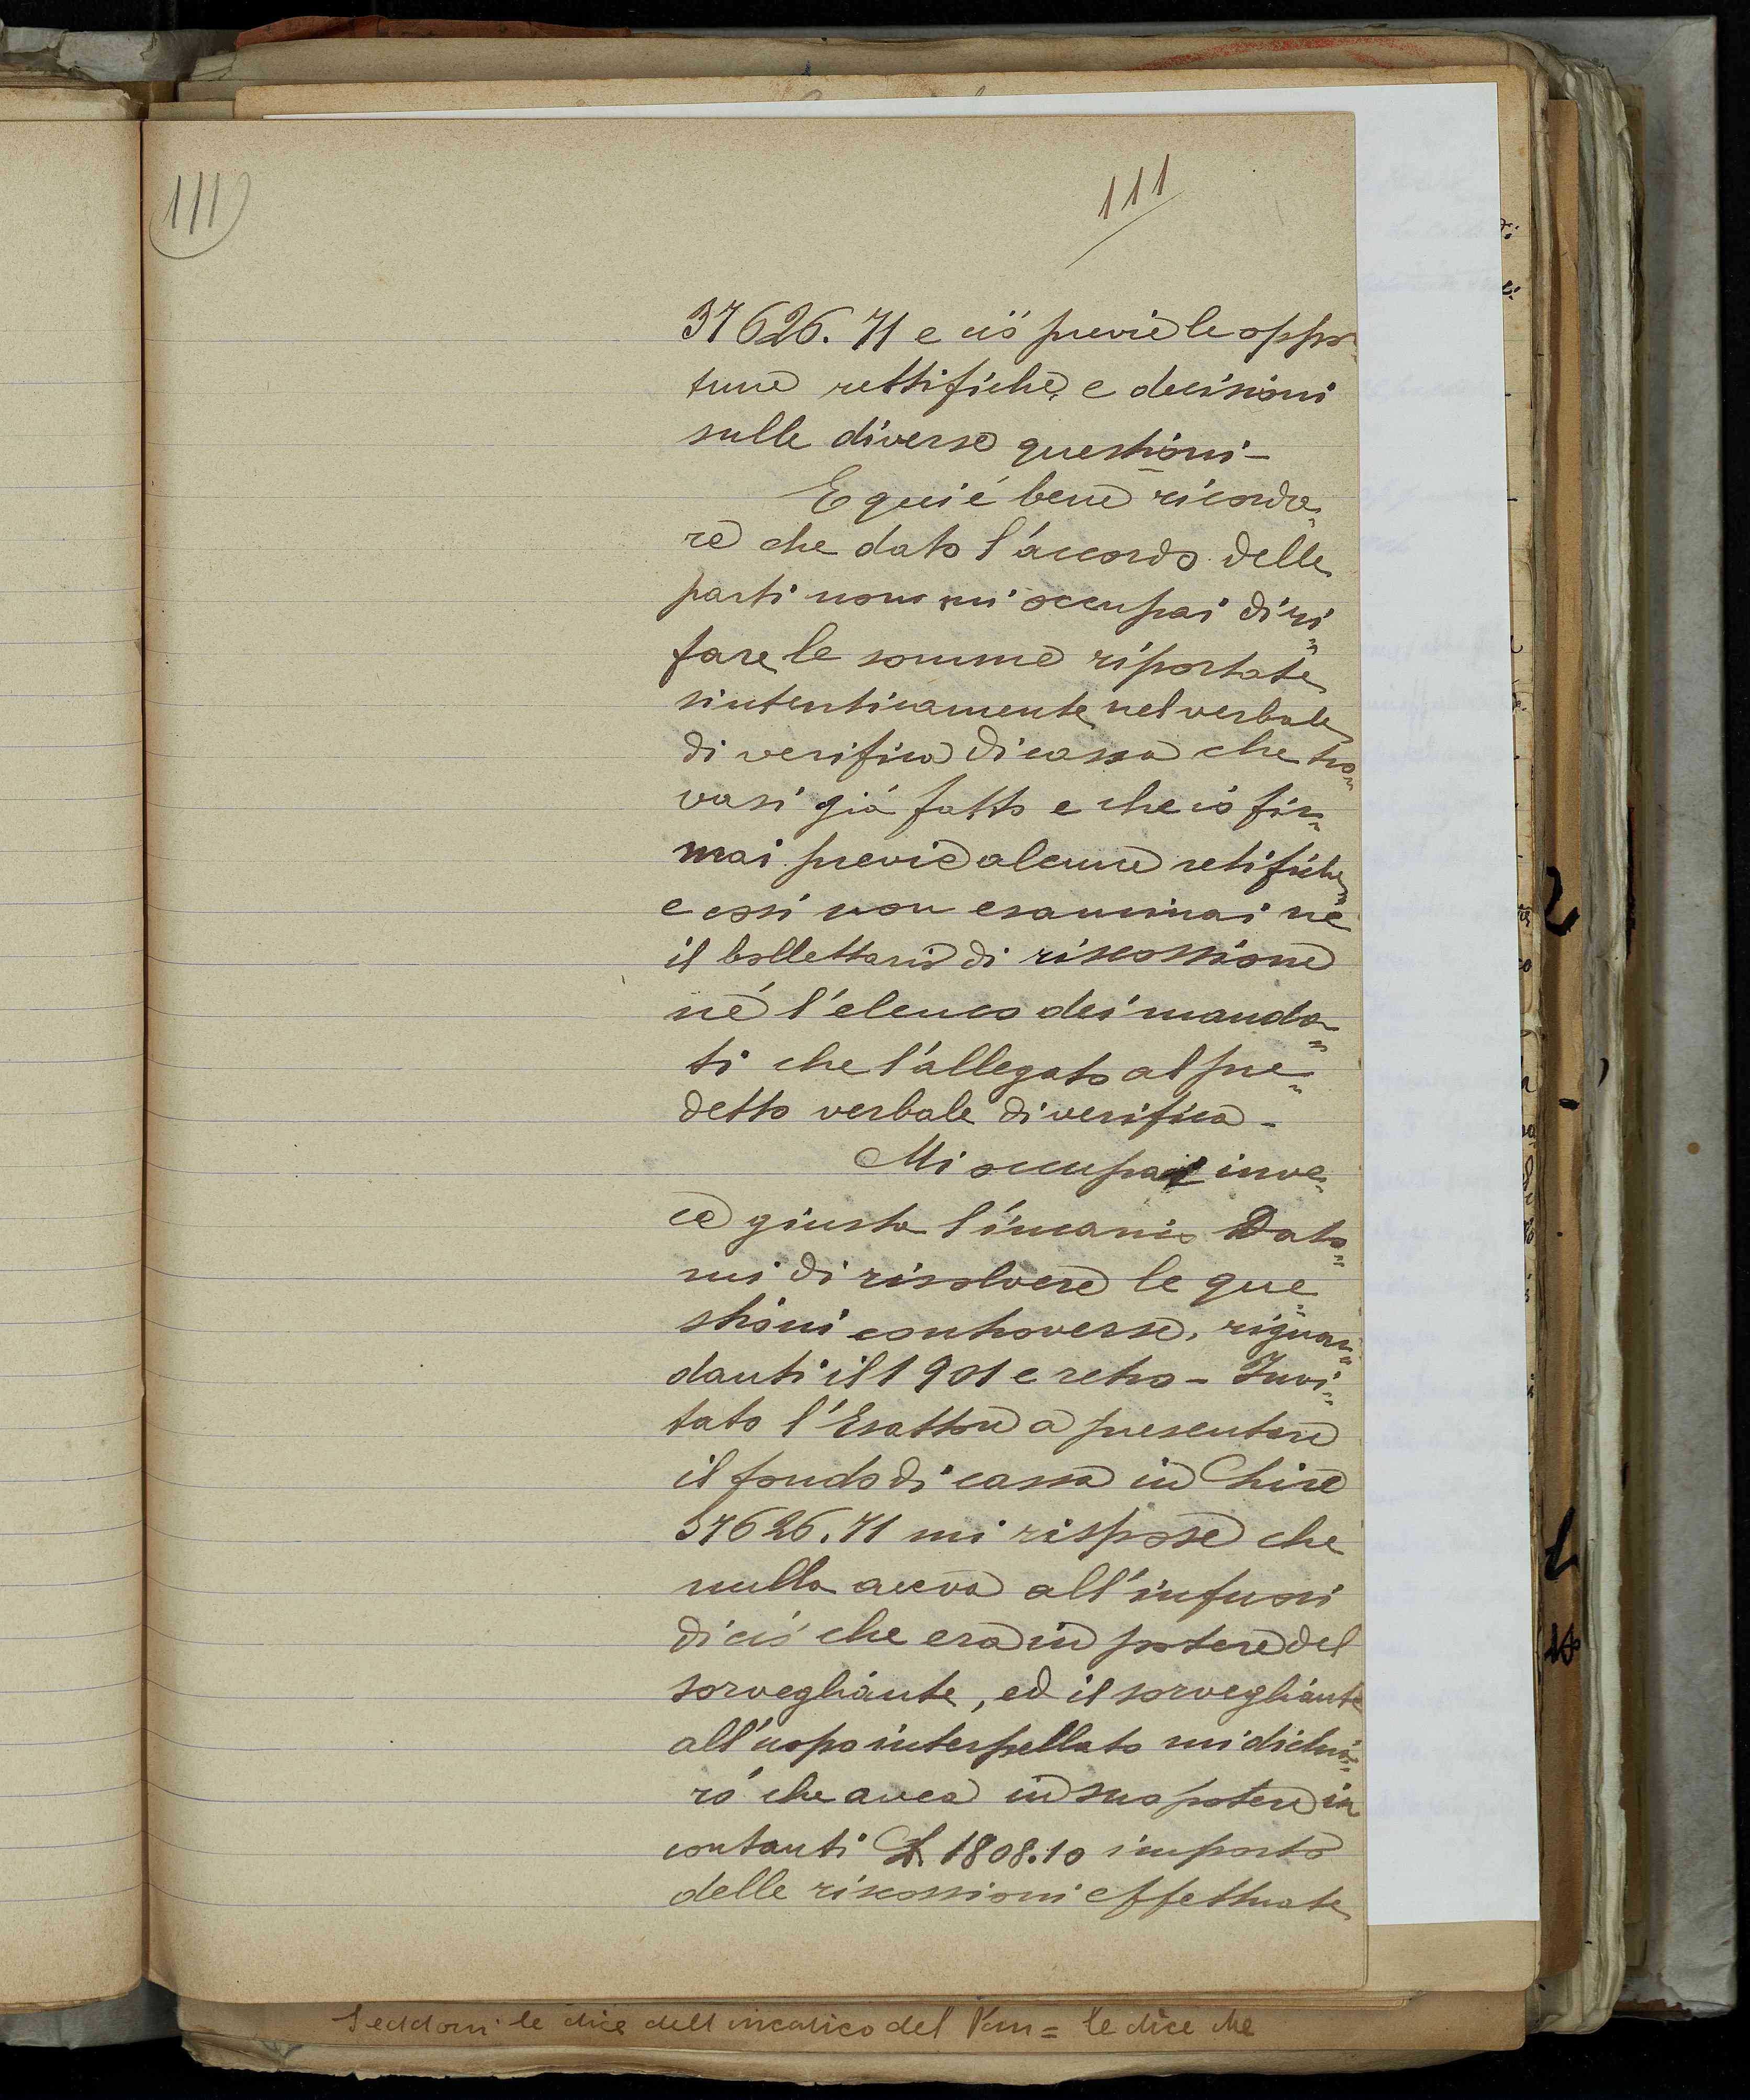 111
111
37626.71 e ciò previe le oppor=
tune rettifiche e decisioni
sulle diverse questioni -
E qui é bene ricorda=
re che dato l'accordo delle
parti non mi occupai di ri=
fare le somme riportate
sintenticamente nel verbale
di verifica di cassa che tro=
vasi giá fatto e che io fir=
mai previe alcune retifiche
e cosi non esaminai né
il bollettario di riscossione
né l'elenco dei manda=
ti che l'allegato al pre=
detto verbale di verifica -
Mi occupai inve=
ce giusta l'incarico Dato=
mi di risolvere le que=
stioni controverse, riguar=
danti il 1901 e retro - Invi=
tato l'Esattore a presentare
il fondo di cassa in Lire
37626.71 mi rispose che
nulla aveva all'infuori
di ció che era in potere del
sorvegliante, ed il sorvegliante
all'uopo interpellato mi dichia=
ró che avea in suo potere in
contanti L 1808.10 importo
delle riscossioni effettuate
le dice dell incarico del = le dice che